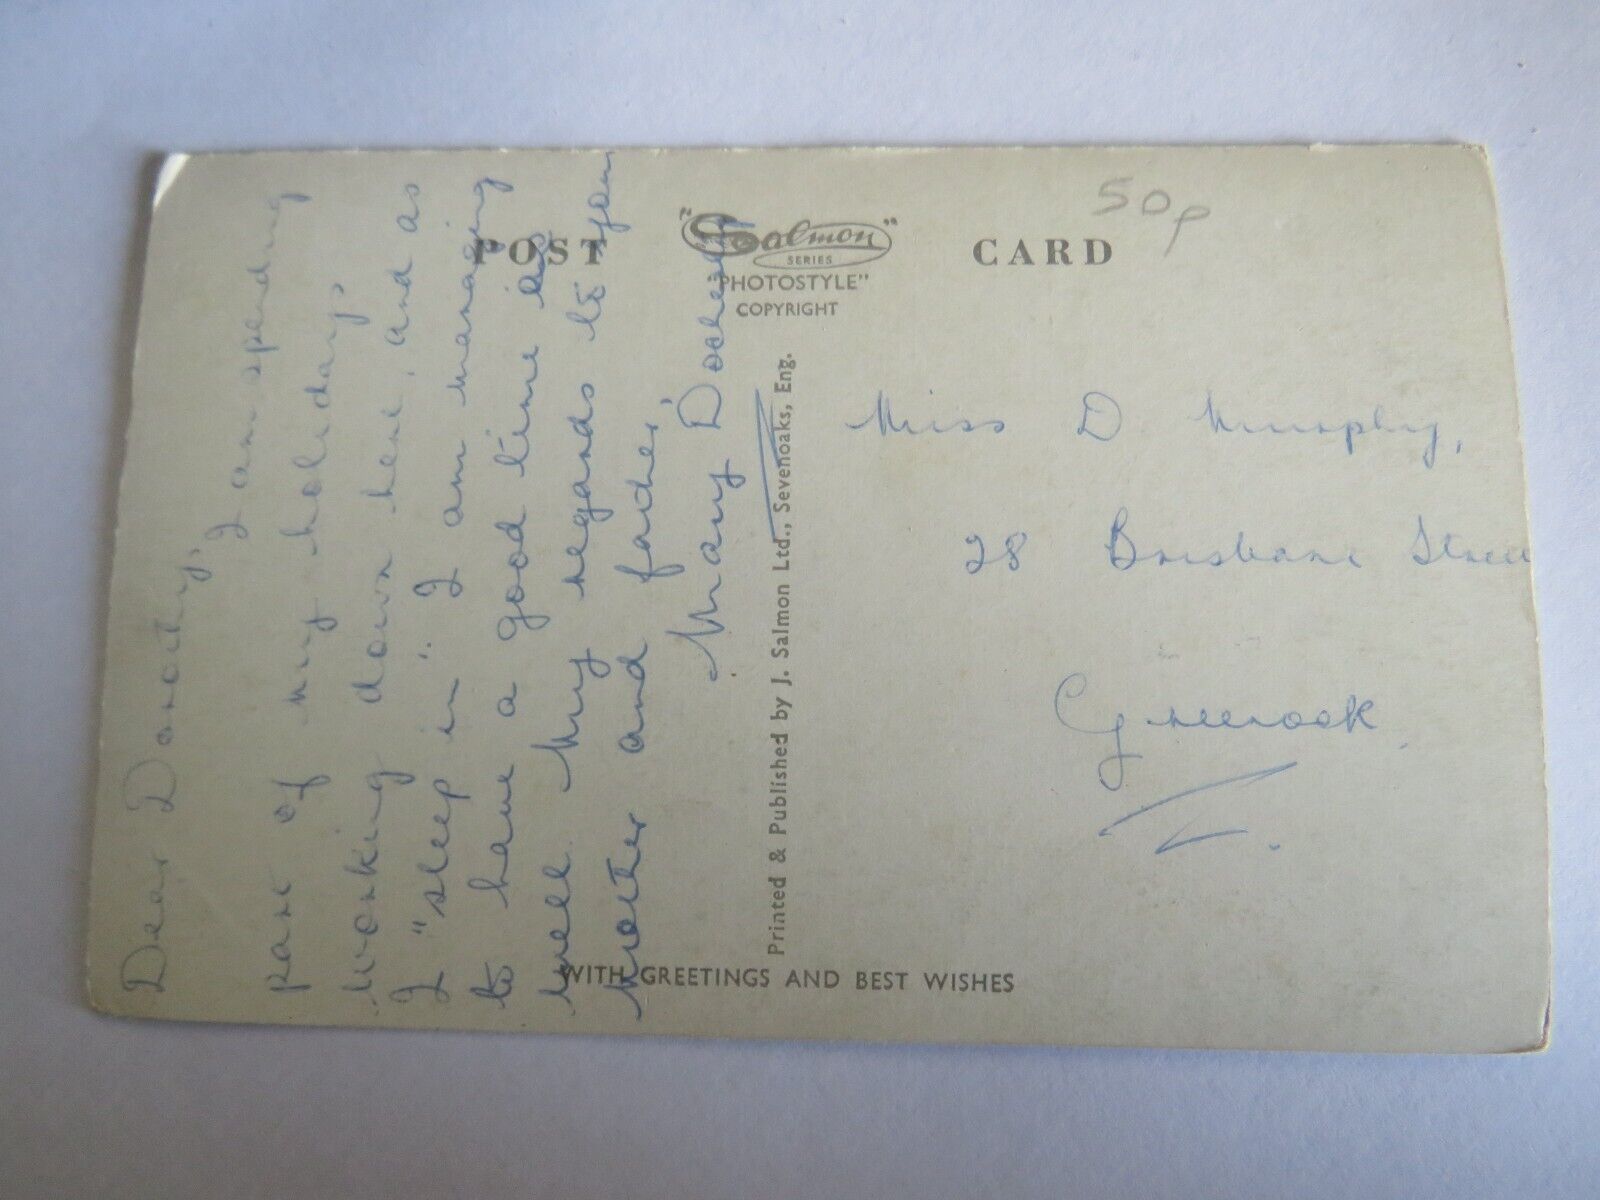 Dear Dorothy,
I am spending
part of my holidays
working down here, and as
I "sleep in". I am managing
to have a good time as
well. My regards to your
mother and father,
Mary Docherty
POST CARD
"Salmon"
SERIES
"PHOTOSTYLE"
COPYRIGHT
50p
Printed & Published by J. Salmon Ltd., Sevenoaks, Eng.
WITH GREETINGS AND BEST WISHES
Miss D Murphy,
28 Brisbane Street
Greenock.